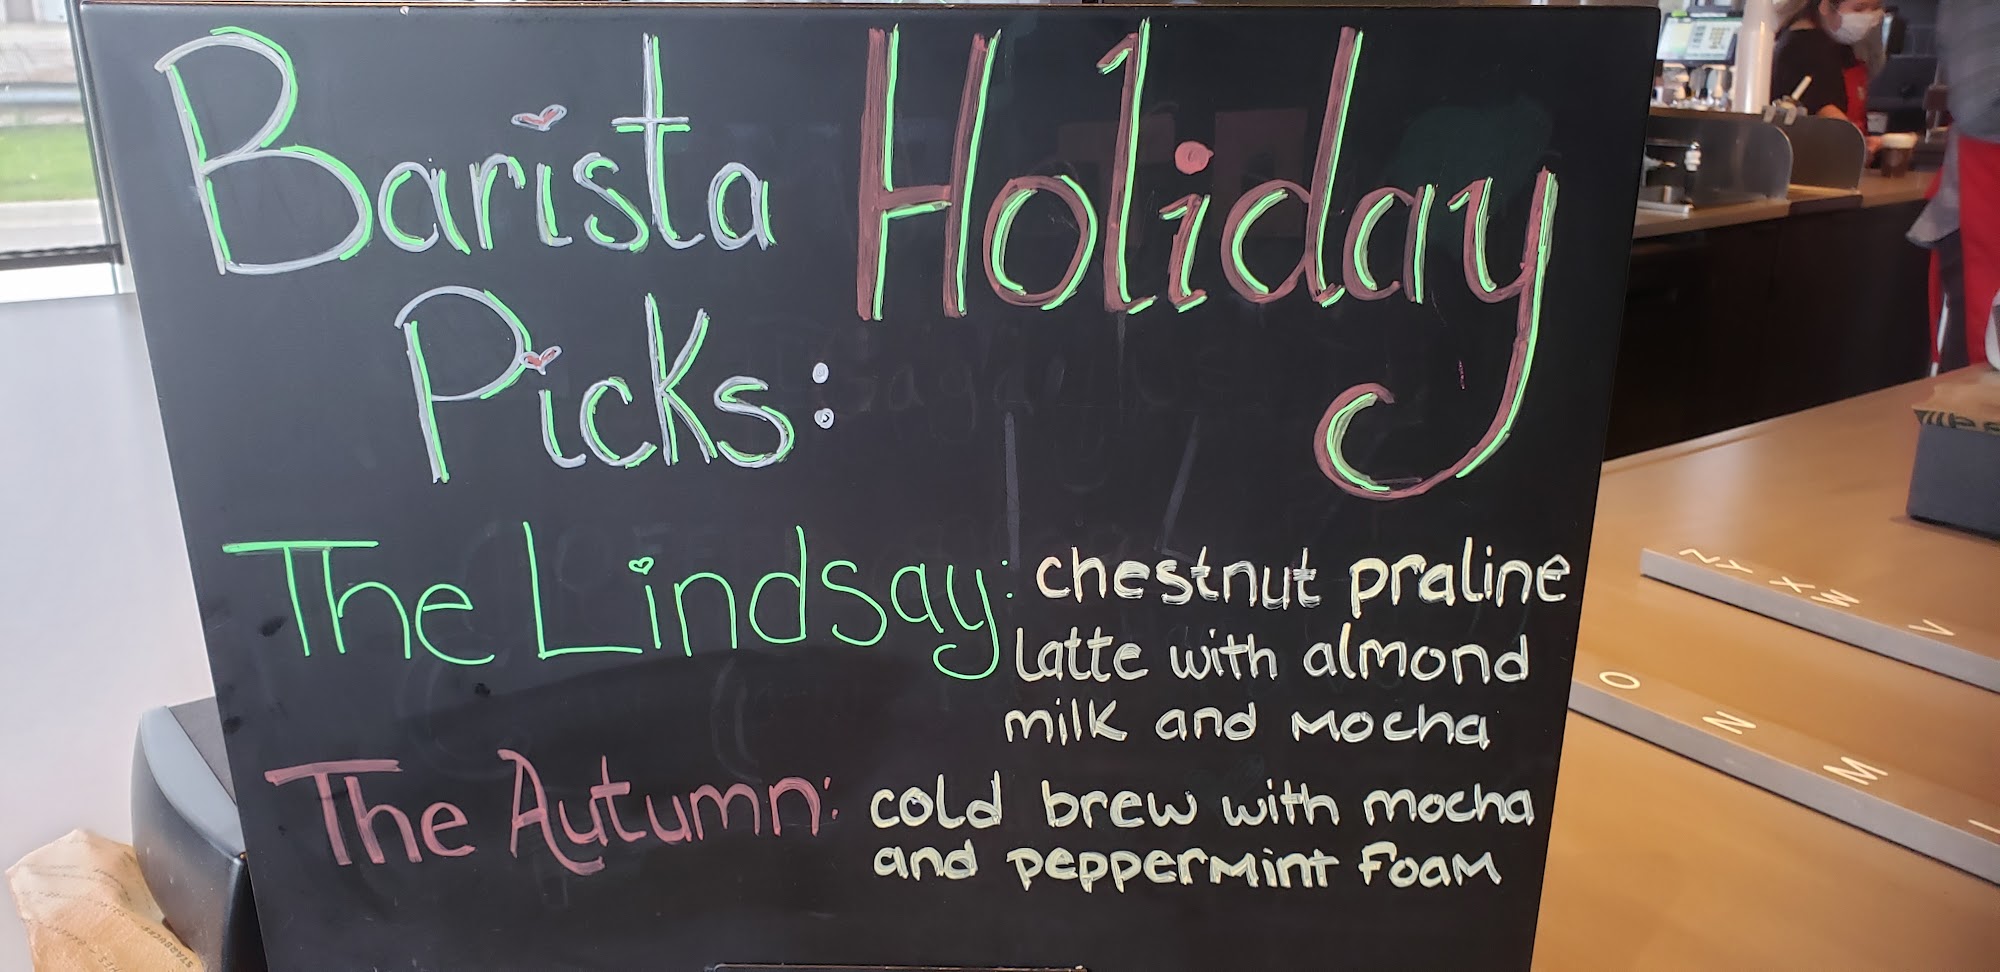 Barista Holiday
Picks:
The Lindsay: chestnut praline
latte with almond
milk and mocha
The Autumn: cold brew with mocha
and peppermint foam
Z Y X W V
O N M L
STARBUCKS